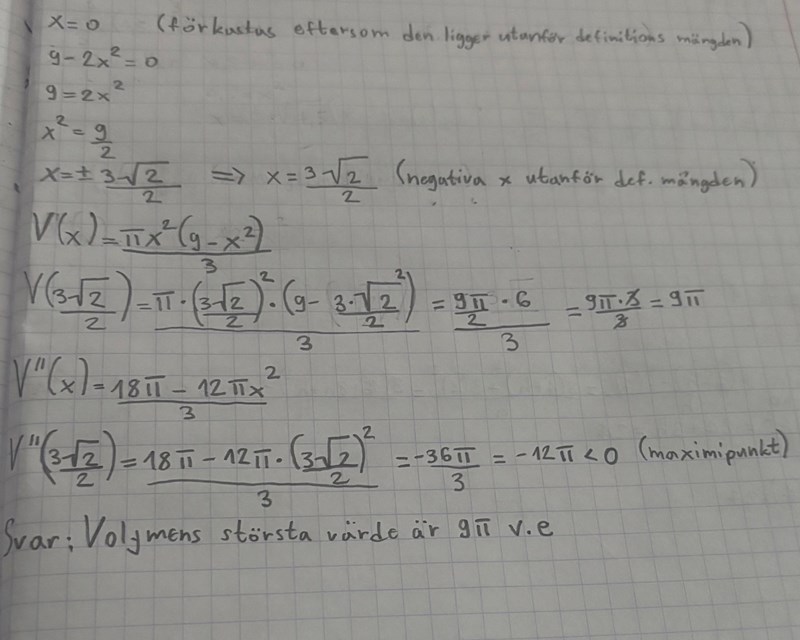 x=0 (förkastas eftersom den ligger utanför definitions mängden)
9-2x²=0
9=2x²
x²=9/2
x=±3√2/2 => x=3√2/2 (negativa x utanför def. mängden)
V(x)=πx²(9-x²)/3
V(3√2/2)=π·(3√2/2)²·(9-3·√2²/2)/3=9π/2·6/3=9π·3/3=9π
V''(x)=18π-12πx²/3
V''(3√2/2)=18π-12π·(3√2/2)²/3=-36π/3=-12π<0 (maximipunkt)
Svar: Volymens största värde är 9π v.e